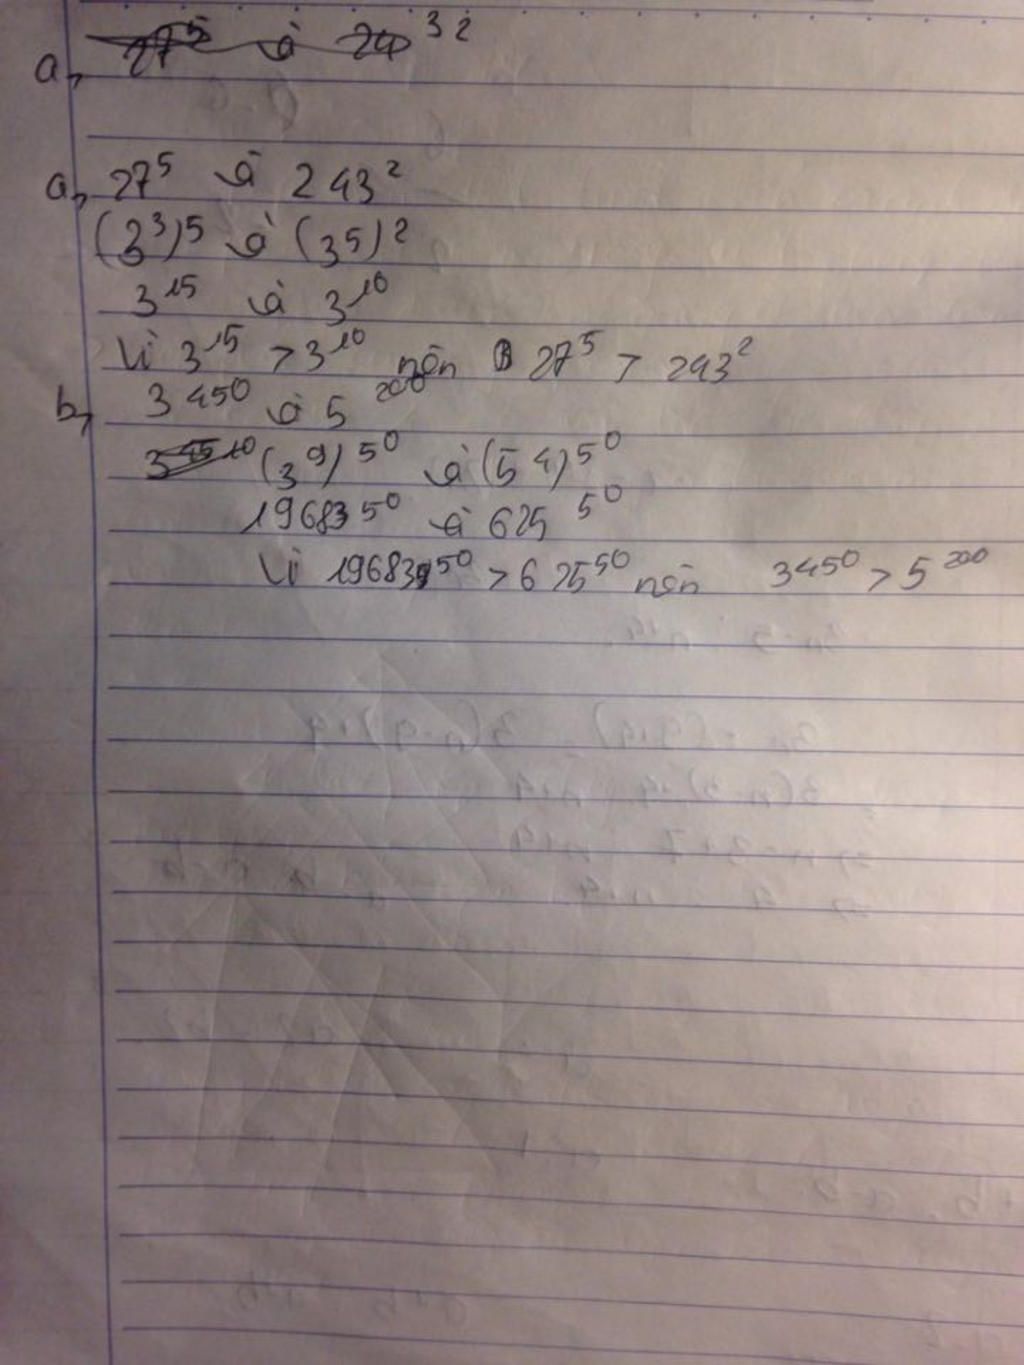 a, 27⁵ và 24 ³²
a, 27⁵ và 243²
(3³)⁵ và (3⁵)²
3¹⁵ và 3¹⁰
Vì 3¹⁵ > 3¹⁰ nên 27⁵ > 243²
b, 3⁴⁵⁰ và 5²⁰⁰
(3⁹)⁵⁰ và (5⁴)⁵⁰
19683⁵⁰ và 625⁵⁰
Vì 19683⁵⁰ > 625⁵⁰ nên 3⁴⁵⁰ > 5²⁰⁰